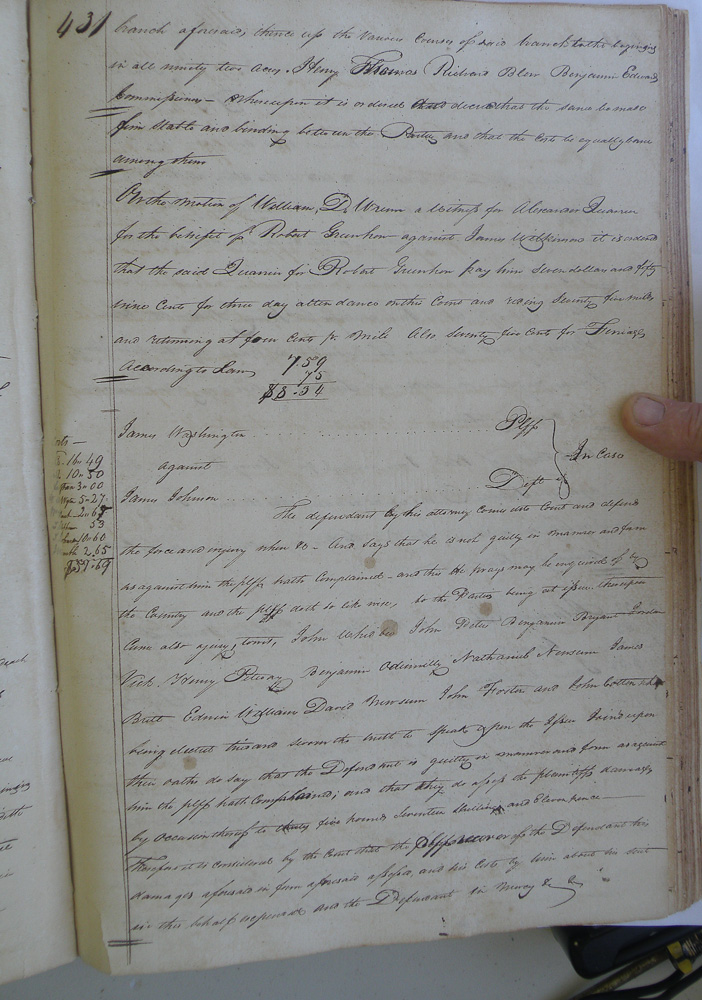 431
branch aforesaid, thence up the Various Courses of said branch to the beginning
in all ninety two acres. Henry Thomas Richard Blow Benjamin Edwards
Commissioners — Whereupon it is ordered and decreed that the same be made
firm stable and binding between the Parties and that the Costs be equally borne
among them
On the motion of William D. Wrenn a Witness for Alexander Quarrier
for the benefit of Robert Greenhow against James Wilkinson it is ordered
that the said Quarrier for Robert Greenhow pay him Seven dollars and fifty
nine Cents for three day attendance on this Court and riding Seventy five miles
and returning at four Cents pr mile Also Seventy five Cents for Ferriages
According to Law
7 59
75
$8.34
James Washington Plff
against In Case
James Johnson Deft
16.49
10.50
3.00
5.27
53
10.60
2.65
The defendant by his attorney comes into Court and defends
the force and injury when &c - And says that he is not guilty in manner and form
as against him the plff hath Complained - and this he prays may be inquired of by
the Country and the plff doth so like wise, so the Parties being at issue thereupon
Came also a jury, towit, John John Peter Benjamin Bryant
Vick Henry Benjamin Nathaniel Newsum James
Britt Edwin William David Newsum John Foster and John Cotten who
being elected tried and sworn the truth to speak upon the Issue Joined upon
their oaths do say that the Defendant is guilty in manner and form as against
him the plff hath Complained; and that they do assess the plaintiffs damages
by occasion thereof to five pounds Seventeen Shillings and Eleven pence —
Therefore it is Considered by the Court that the plff recover of the Defendant his
damages aforesaid in form aforesaid assessed, and his Costs by him about his Suit
in this behalf expended and the Defendant in mercy &c